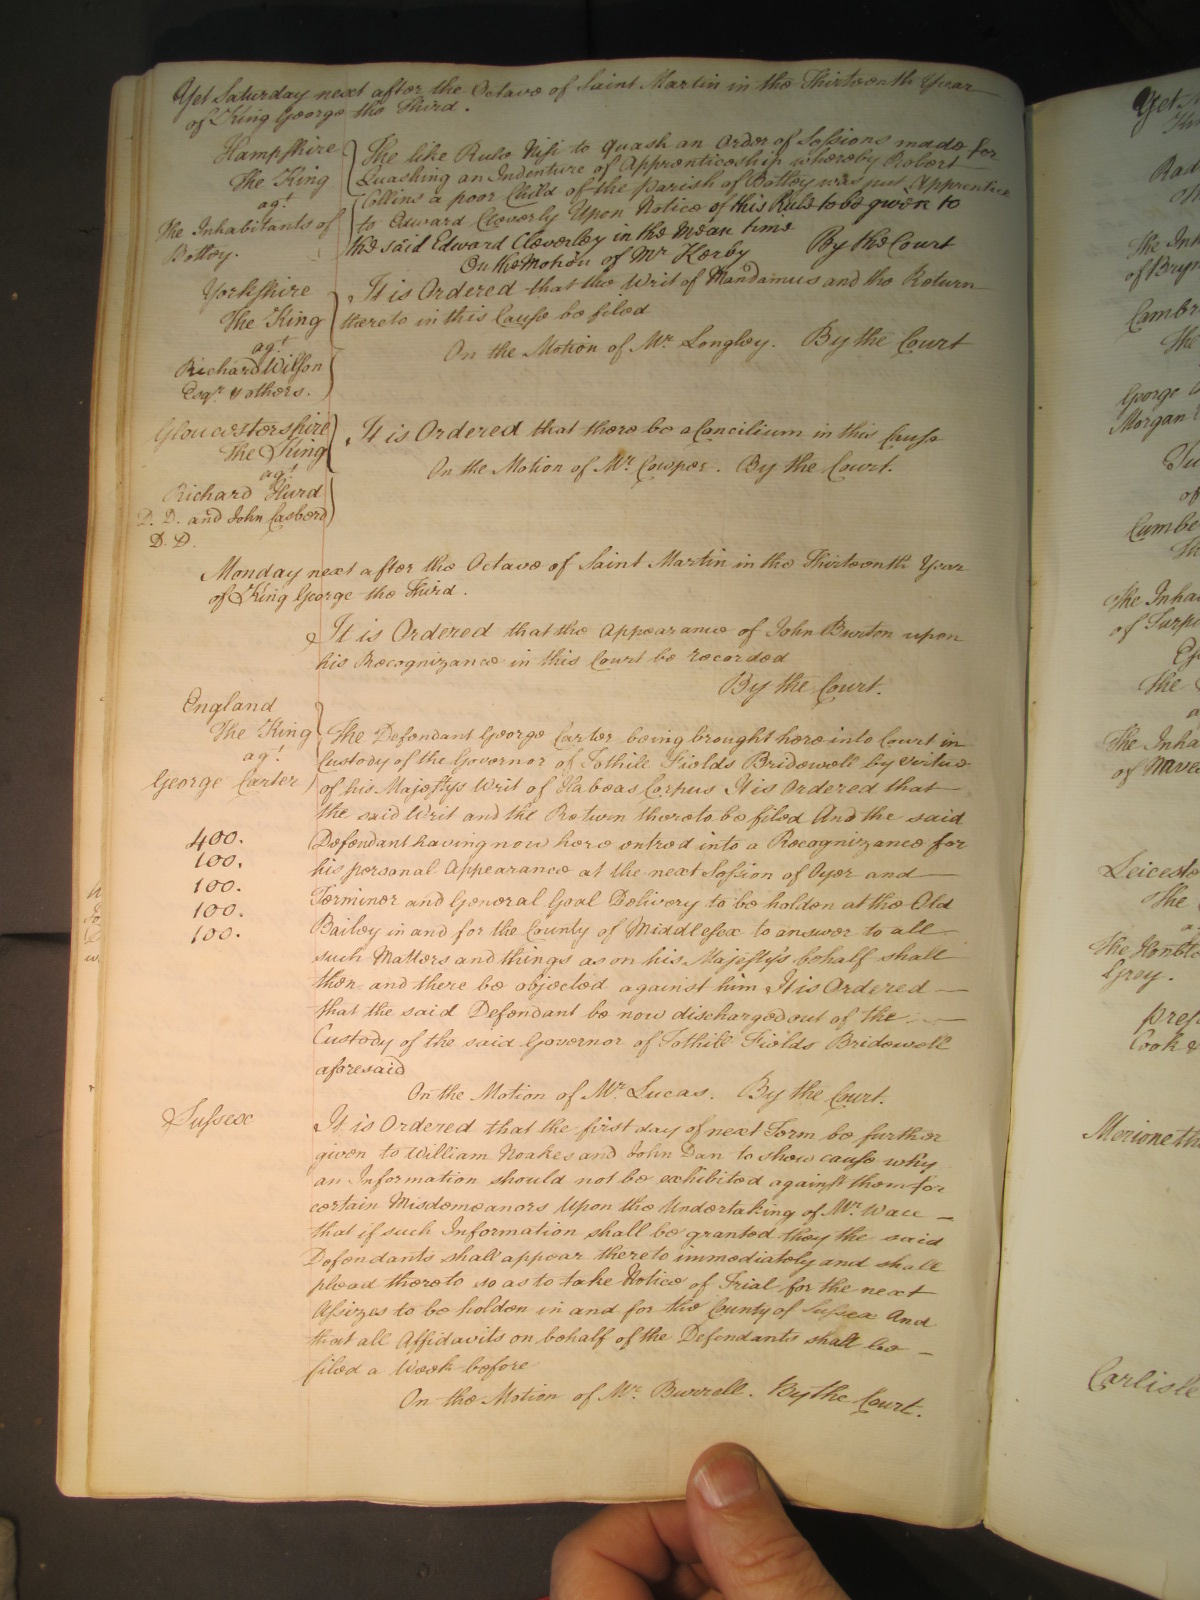 Yet Saturday next after the Octave of Saint Martin in the Thirteenth Year
of King George the Third.
Hampshire
The King
agt
The Inhabitants of
Botley.
The like Rule Nisi to quash an Order of Sessions made for
Quashing an Indenture of Apprenticeship whereby Robert
Collins a poor Child of the parish of Botley was put Apprentice
to Edward Cleverly Upon Notice of this Rule to be given to
the said Edward Cleverley in the mean time
On the Motion of Mr Kerby By the Court
Yorkshire
The King
agt
Richard Wilson
Esqr & others.
It is Ordered that the Writ of Mandamus and the Return
thereto in this Cause be filed
On the Motion of Mr Longley. By the Court
Gloucestershire
The King
agt
Richard Hurd
D. D. and John Casberd
D. D.
It is Ordered that there be a Concilium in this Cause
On the Motion of Mr Cowper. By the Court.
Monday next after the Octave of Saint Martin in the Thirteenth Year
of King George the Third.
It is Ordered that the Appearance of John Burton upon
his Recognizance in this Court be recorded
By the Court.
England
The King
agt
George Carter
400.
100.
100.
100.
100.
The Defendant George Carter being brought here into Court in
Custody of the Governor of Tothill Fields Bridewell by virtue
of his Majestys Writ of Habeas Corpus It is Ordered that
the said Writ and the Return thereto be filed And the said
Defendant having now here entred into a Recognizance for
his personal Appearance at the next Session of Oyer and
Terminer and General Goal Delivery to be holden at the Old
Bailey in and for the County of Middlesex to answer to all
such Matters and things as on his Majesty's behalf shall
then and there be objected against him It is Ordered
that the said Defendant be now discharged out of the
Custody of the said Governor of Tothill Fields Bridewell
aforesaid
On the Motion of Mr Lucas. By the Court.
Sussex
It is Ordered that the first day of next Term be further
given to William Noakes and John Dan to show cause why
an Information should not be exhibited against them for
certain Misdemeanors Upon the Undertaking of Mr Wace
that if such Information shall be granted they the said
Defendants shall appear thereto immediately and shall
plead thereto so as to take Notice of Trial for the next
Assizes to be holden in and for the County of Sussex And
that all Affidavits on behalf of the Defendants shall be
filed a Week before
On the Motion of Mr Burrell. By the Court.
Yet
The Inh
of Bryn
Cambr
The
George
Morgan
of
Cumbe
Th
The Inha
of Turpi
The
The Inha
of
Leiceste
The
The Honble
Grey.
Cook &
Merioneth
Carlisle